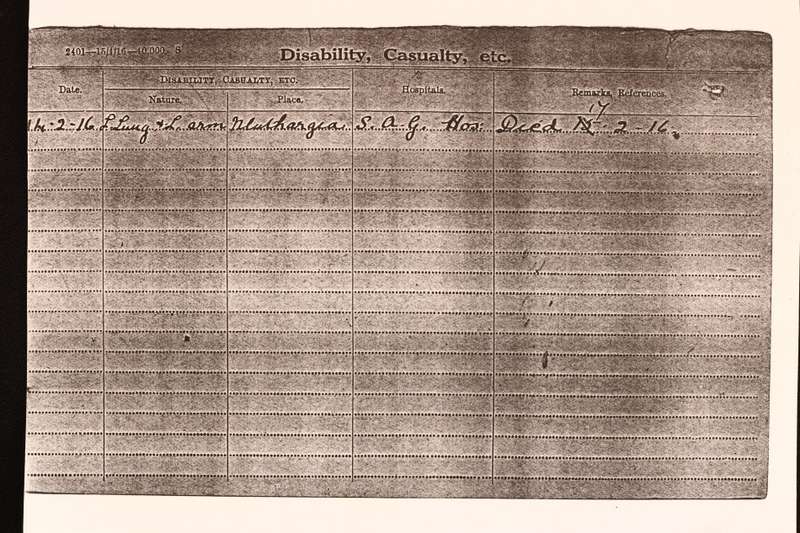 2401—15/4/16—40,000. S
Disability, Casualty, etc.
Date.
Disability, Casualty, etc.
Nature.
Place.
Hospitals.
Remarks, References.
14-2-16 L Lung & L. arm S. A. G. Hos: Died 17 2-16.